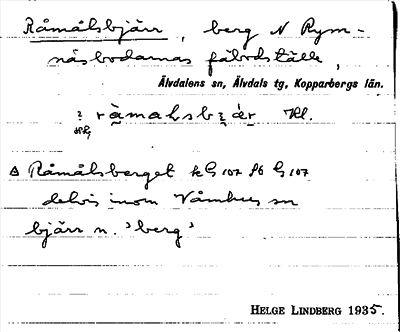 Råmålsbjärr, berg N Rym-
näsbodarnas fäbodställe,
Älvdalens sn, Älvdals tg, Kopparbergs län.
Hl.
Råmålsberget kG 107 Sb G 107
delvis inom Våmhus sn
bjärr n. 'berg'
HELGE LINDBERG 1935.